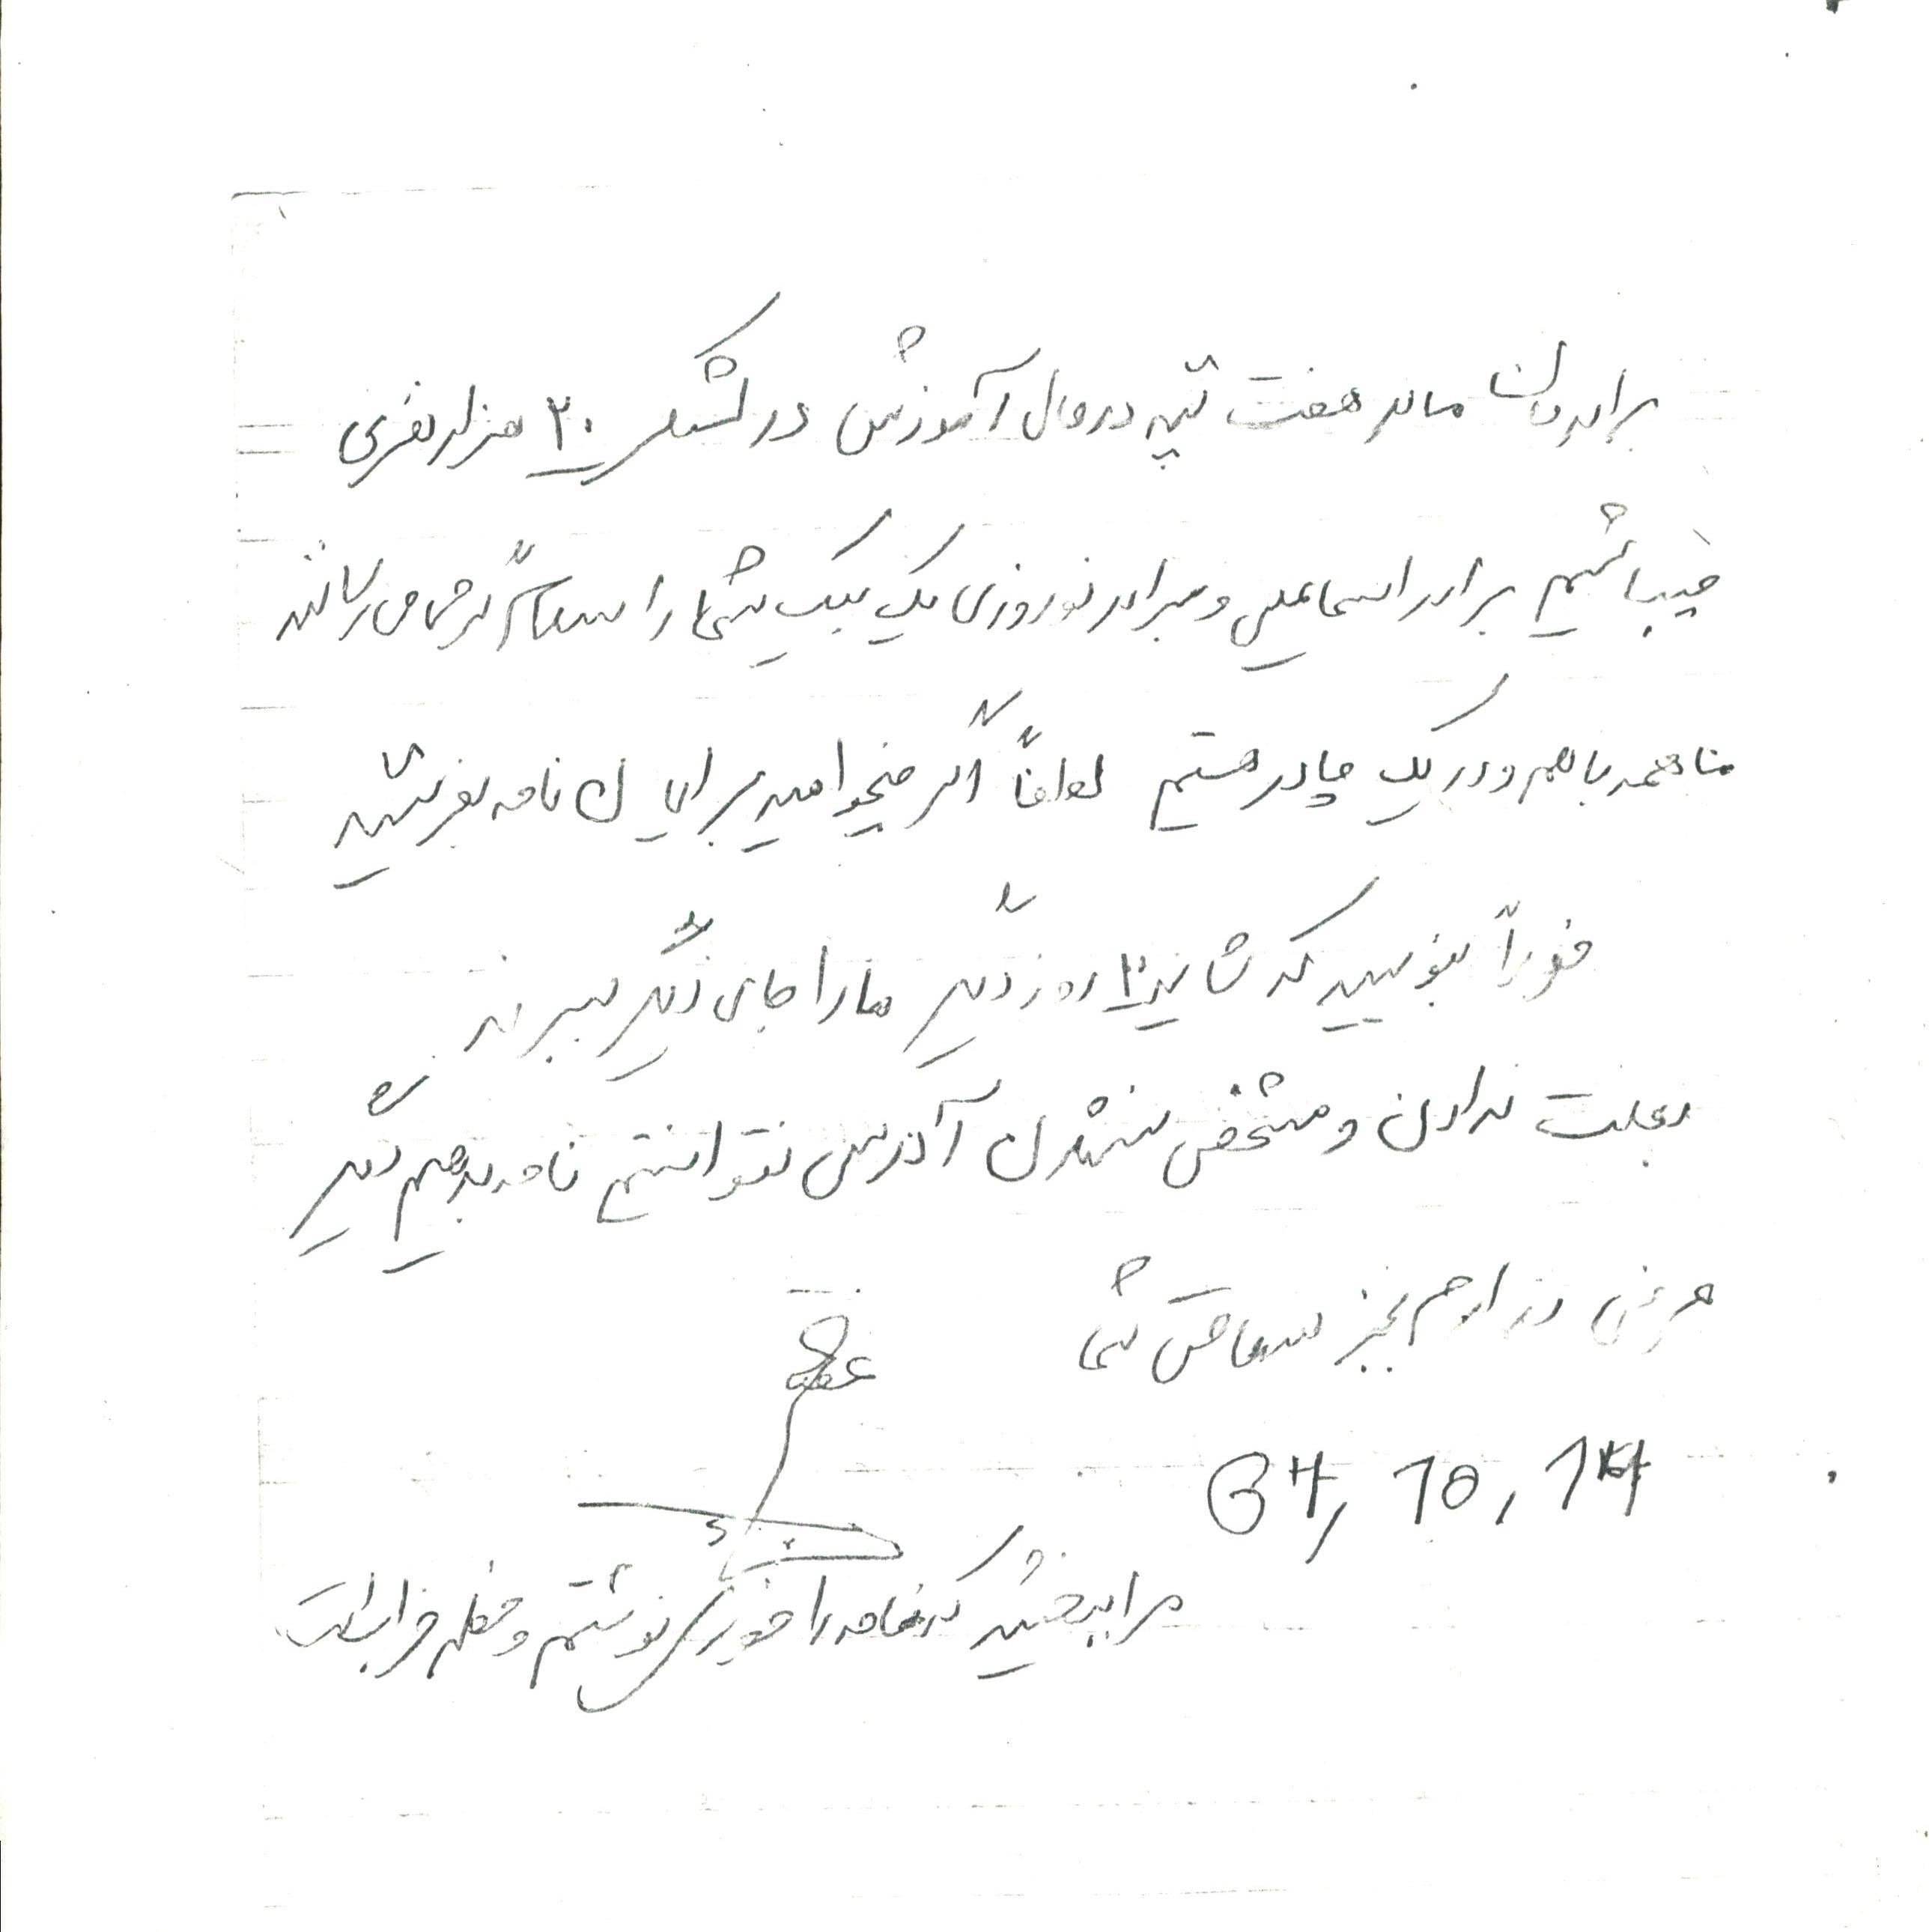 برادران ما در هفت تپه در حال آموزش در لشکر ۲۰ هزار نفری
میباشیم برادر اسماعیلی و برادر نوروزی یک یک شما را سلام گرم می رسانند
ما همه با هم و در یک چادر هستیم لطفاً اگر میخواهید برایمان نامه بفرستید
فوراً بنویسید که شاید ۲ روز دیگر ما را جای دیگر ببرند
بعلت ندادن و مشخص نشدن آدرس نتوانستم نامه بدهیم دیگر
عرضی ندارم بجز سلامتی شما
64, 10, 14
مرا ببخشید که نامه را خودکار نوشتم و خطم خراب است